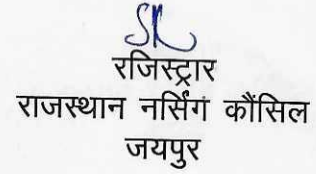 रजिस्ट्रार
राजस्थान नर्सिंग कौंसिल
जयपुर